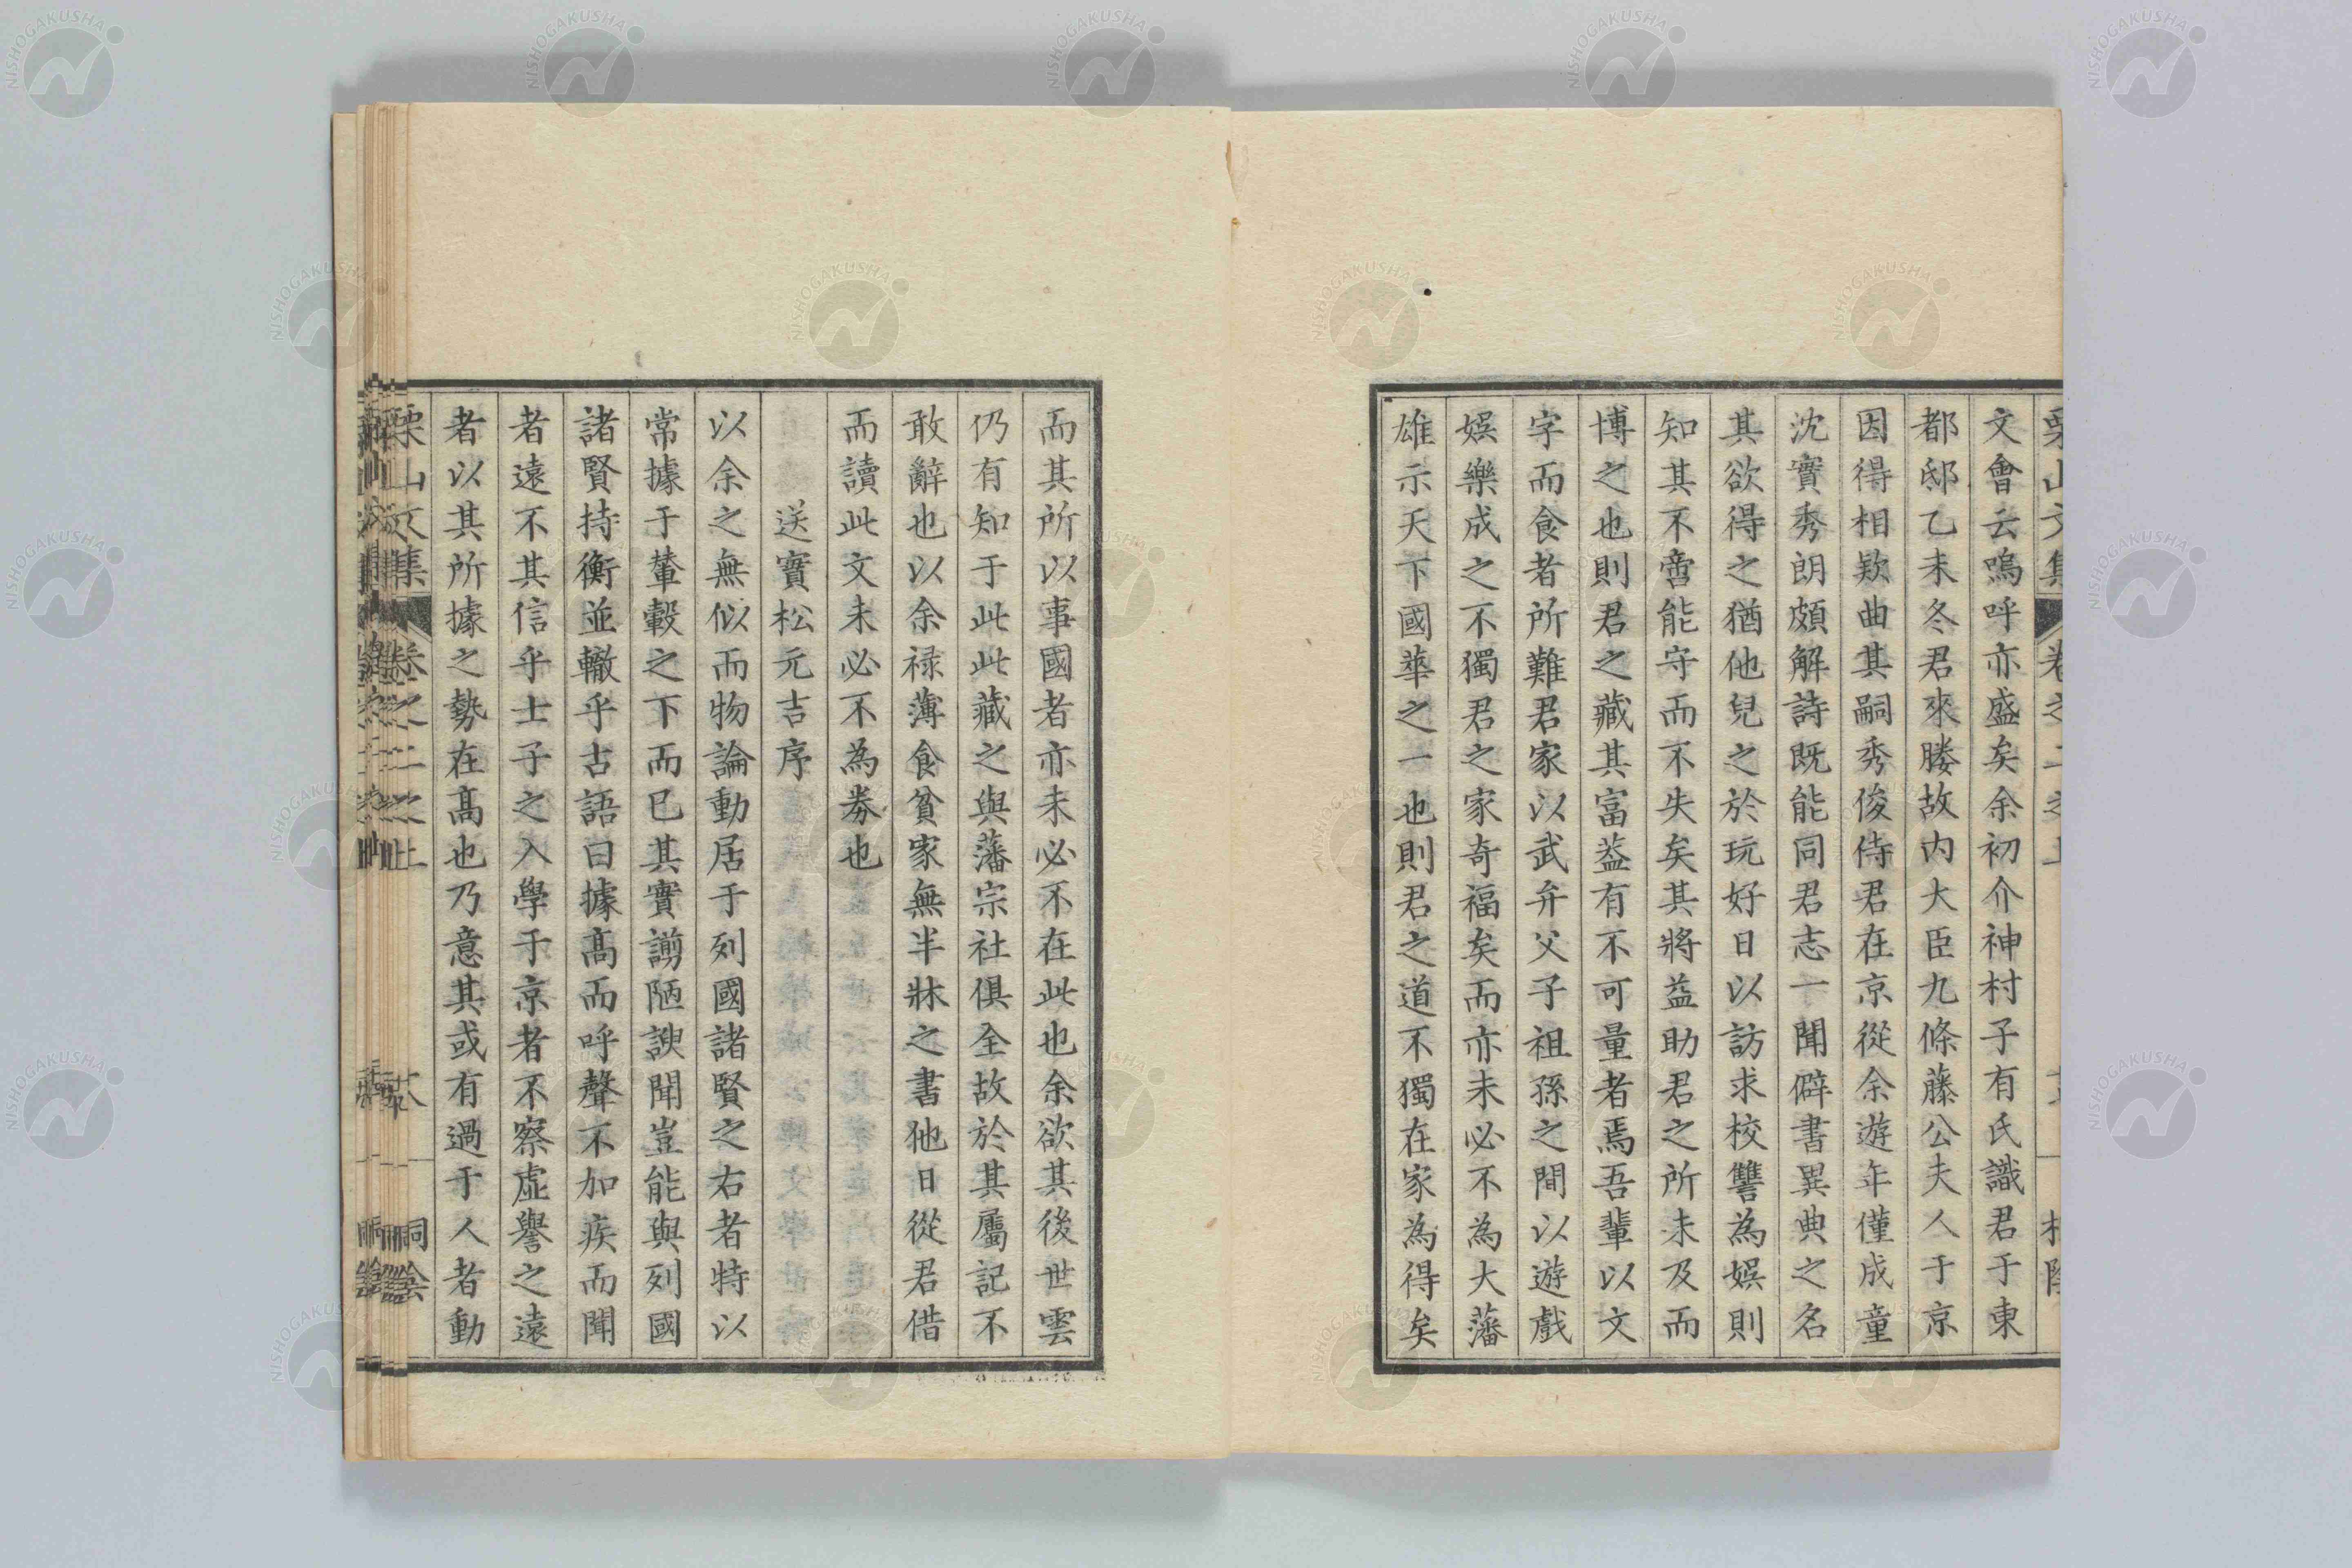 文會云嗚呼亦盛矣余初介神村子有氏識君于東
都邸乙未冬君來媵故内大臣九條藤公夫人于京
因得相欵曲其嗣秀俊侍君在京從余遊年僅成童
沈實秀朗頗解詩既能同君志一聞僻書異典之名
其欲得之猶他兒之於玩好日以訪求校讐為娯則
知其不啻能守而不失矣其將益助君之所未及而
博之也則君之藏其富葢有不可量者焉吾輩以文
字而食者所難君家以武弁父子祖孫之間以遊戲
娯樂成之不獨君之家奇福矣而亦未必不為大藩
雄示天下國華之一也則君之道不獨在家為得矣
而其所以事國者亦未必不在此也余欲其後世雲
仍有知于此此藏之與藩宗社俱全故於其屬記不
敢辭也以余禄薄食貧家無半牀之書他日從君借
而讀此文未必不為劵也
送寳松元吉序
以余之無似而物論動居于列國諸賢之右者特以
常據于輦轂之下而已其實謭陋諛聞豈能與列國
諸賢持衡並轍乎古語曰據髙而呼聲不加疾而聞
者遠不其信乎士子之入學于京者不察虛譽之遠
者以其所據之勢在髙也乃意其或有過于人者動
栗山文集 卷之二之上